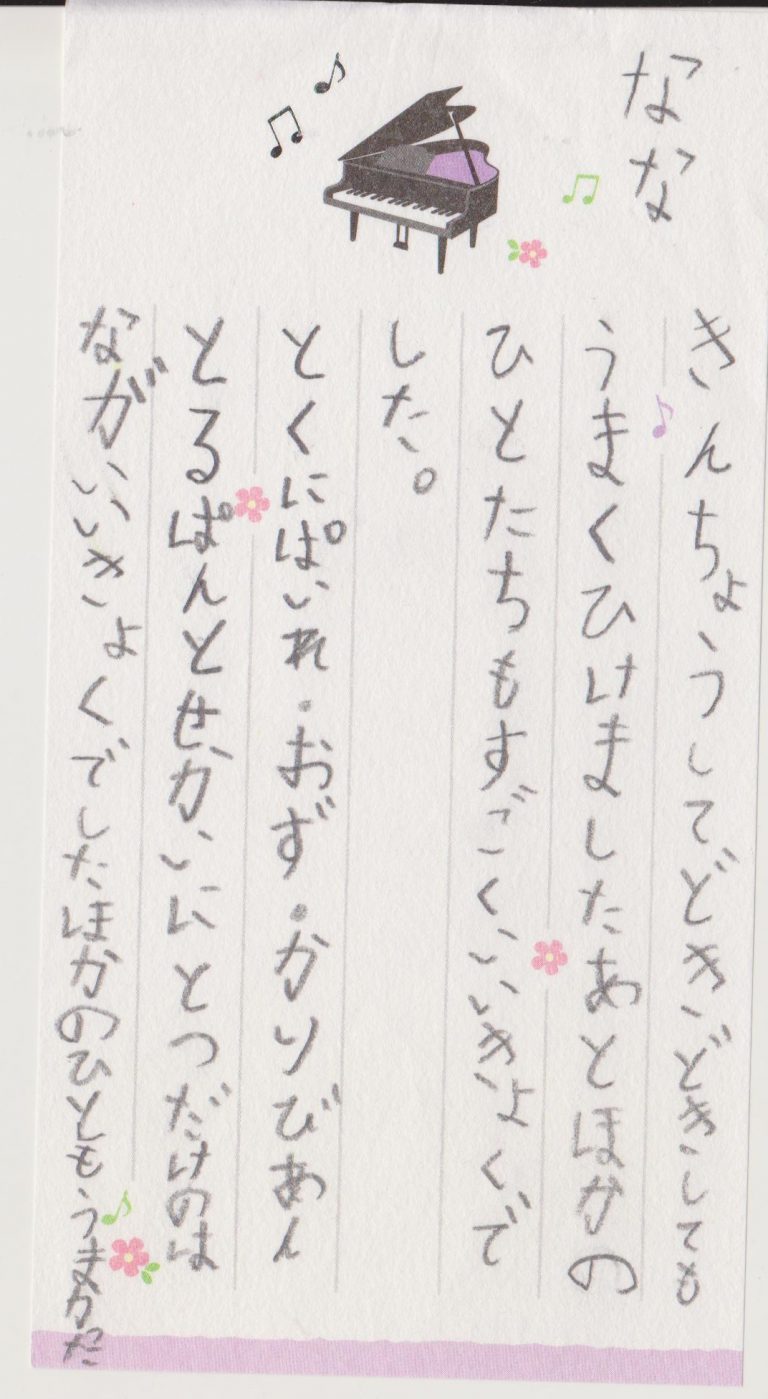 なな
きんちょうして、どきどきしても
うまくひけましたあとほかの
ひとたちもすごくいいきよくで
した。
とくにぱいれ・おず・かりびあん
とるぱんとせかいにとつだけのは
ながいいきよくでしたほかのひともうまかた